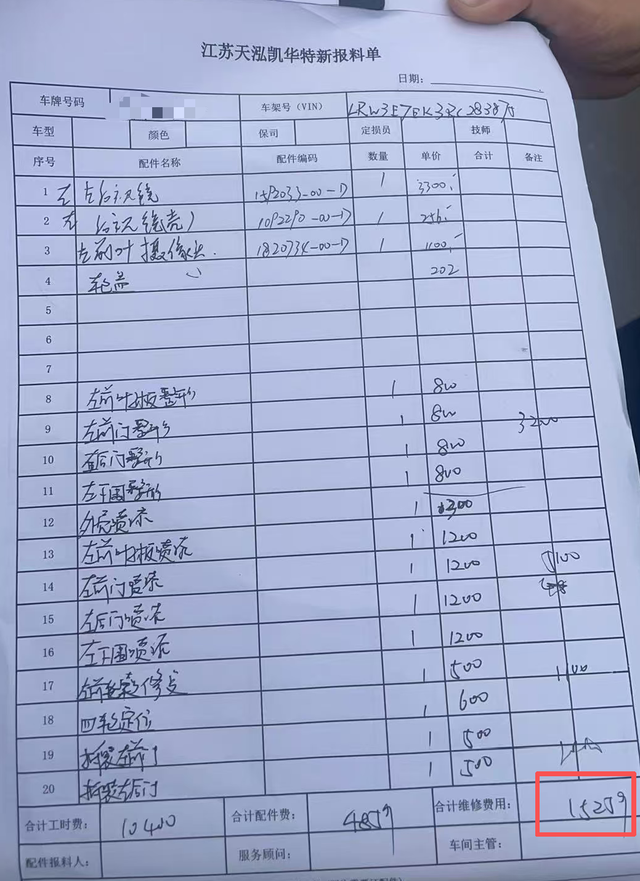 江苏天泓凯华特新报料单
日期:
车牌号码 车架号(VIN) LRW3E7EK3RC283875
车型 颜色 保司 定损员 技师
序号 配件名称 配件编码 数量 单价 合计 备注
1 左后视镜 1592033-00-D 1 3300
2 后视镜壳 1092290-00-D 1 256
3 左前叶摄像头 1820734-00-D 1 1100
4 轮盖 202
5
6
7
8 左前叶子板整形 1 800
9 左前门整形 1 800 3200
10 左后门整形 1 800
11 左下围整形 1 800
12 外壳喷漆 1 300
13 左前叶子板喷漆 1 1200
14 左前门喷漆 1 1200 5100
15 左后门喷漆 1 1200
16 左下围喷漆 1 1200
17 修复 1 500 1100
18 四轮定位 1 600
19 拆装左前门 1 500
20 拆装左后门 1 500
合计工时费: 10400 合计配件费: 4859 合计维修费用: 15259
配件报料人: 服务顾问: 车间主管: